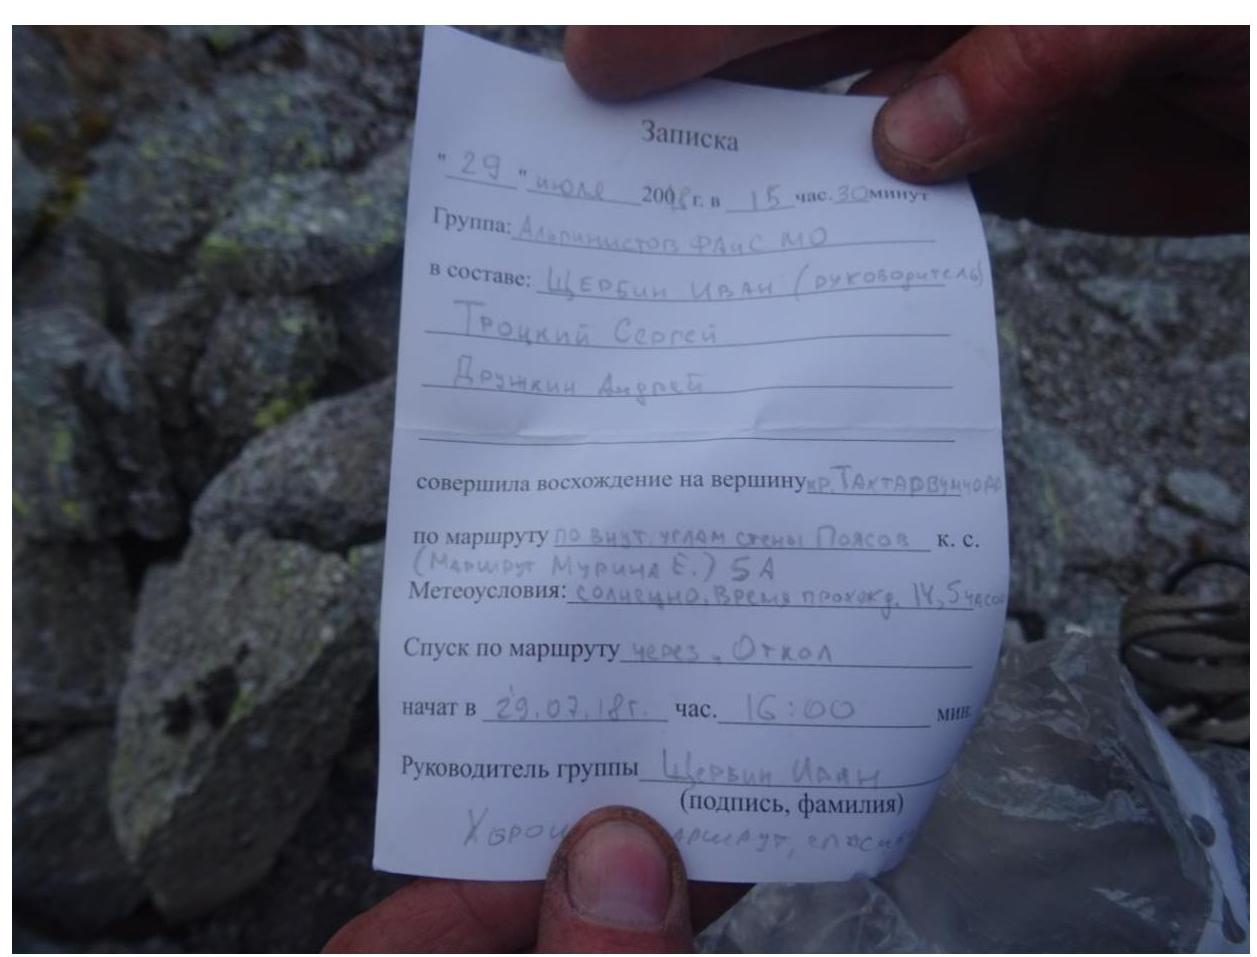 Записка
"29" июля 2018г. в 15 час. 30 минут
Группа: Альпинистов ФАиС МО
в составе: Щербин Иван (руководитель)
Троцкий Сергей
Дружкин Андрей
совершила восхождение на вершину пр. Тактарвумчорр
по маршруту по внут. углам стены Поясов к. с.
(Маршрут Мурина Е.) 5А
Метеоусловия: солнечно. Время прохожд. 14,5 часов
Спуск по маршруту через "Откол
начат в 29.07.18г. час. 16:00 мин.
Руководитель группы Щербин Иван
(подпись, фамилия)